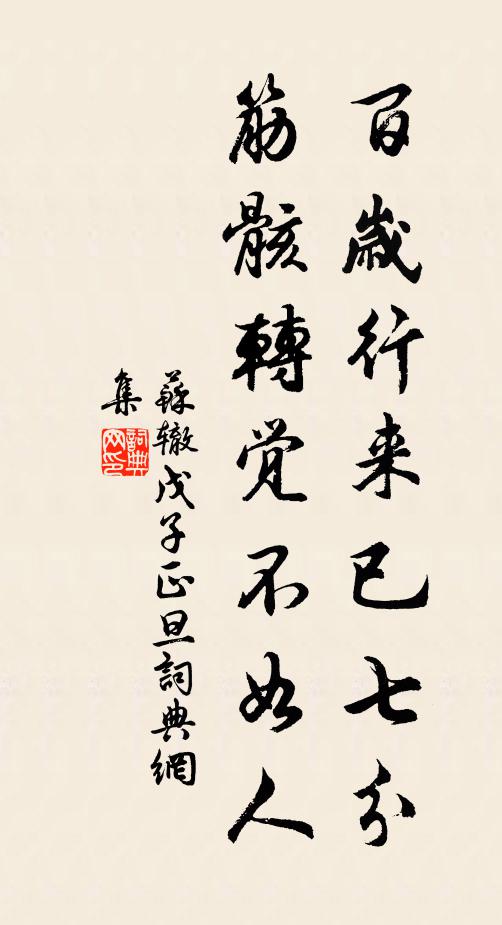 百歲行来已七分
筋骸轉覚不如人
蘇辙戊子正旦詞典網
集
詞典网印